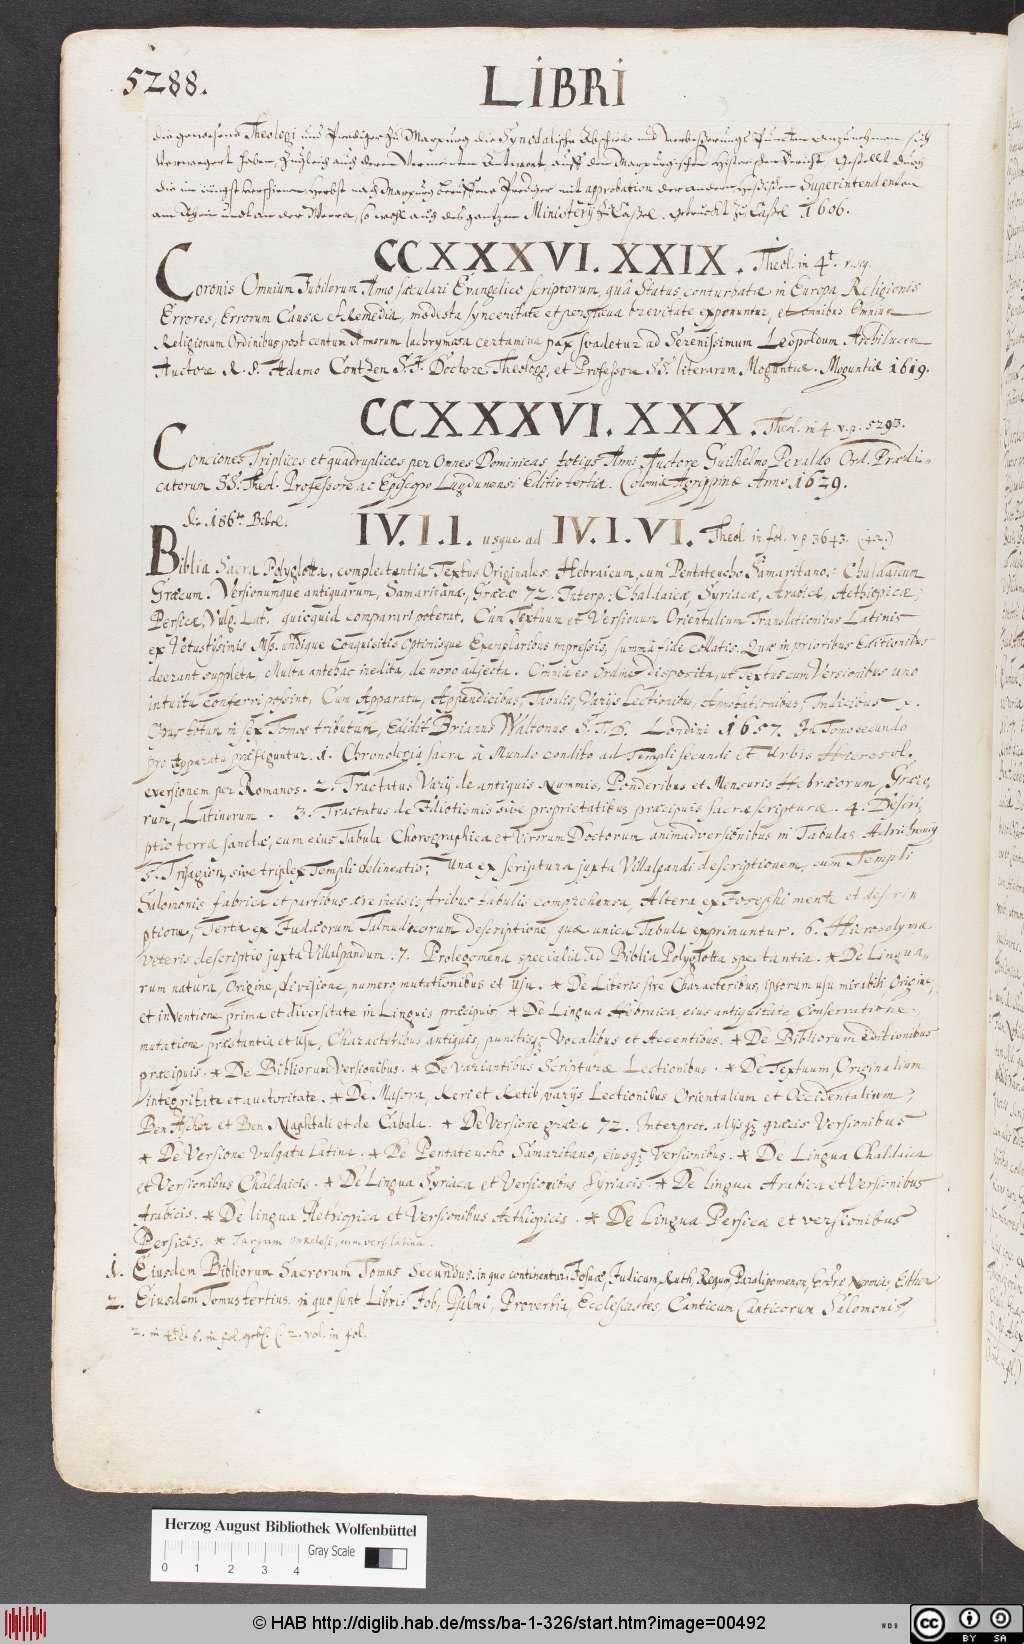 5288. LIBRI
die gewesene Theologi und Prediger zu Marpurg die Synodalische Abschiede und Verbesserungs Puncten anzunehmen sich
verweigert haben, Zugleich aus dem Antwort auff den Marpurgischen Historischen Bericht, Gestellt durch
die im nach Marpurg Prediger mit approbation der andern Hessischen Superintendenten
am Rhein und an der Werra, so wohl aus des gantzen Ministery zu Cassel. Gedruckt zu Cassel 1606.
CCXXXVI. XXIX. Theol. in 4t.
Coronis Omnium Jubilorum Anno sæculari Evangelico scriptorum, quâ Status conturbatæ in Europa Religionis
Errores, Errorum Causæ et Remedia, modesta synceritate et perspicua brevitate exponuntur, et omnibus Omnium
Religionum Ordinibus post centum Annorum lachrymosa certamina pax svadetur ad Serenissimum Leopoldum Archiducem
Auctore R. P. Adamo Contzen S. J. Doctore Theologo, et Professore SS. literarum Moguntiæ. Moguntiæ 1619.
CCXXXVI. XXX. Theol. in 4. v. p. 5293.
Conciones Triplices et quadruplices per Omnes Dominicas totius Anni Auctore Guilhelmo Peraldo Ord. Prædi-
catorum SS. Theol. Professore ac Episcopo Lugdunensi Editio tertia. Coloniæ Agrippinæ Anno 1629.
186 Bibel. IV. I. I. usque ad IV. I. VI. Theol. in fol. v p 3643. (42.)
Biblia Sacra Polyglotta, complectentia Textus Originales. Hebraicum, cum Pentateucho Samaritano: Chaldaicum
Græcum. Versionumque antiquarum, Samaritanæ, Græcæ 72. Interp: Chaldaicæ, Syriacæ, Arabicæ, Aethiopicæ,
Persicæ, Vulg. Lat. quicquid comparari poterat. Cum Textuum et Versionum Orientalium Translationibus Latinis
ex Vetustissimis Mss. undique conquisitis optimisque Exemplaribus impressis, summâ fide collatis. Quæ in prioribus Editionibus
deerant suppleta, Multa antehac inedita, de novo adjecta. Omnia eo Ordine disposita, ut Textus cum Versionibus uno
intuitu conferri possint, Cum Apparatu, Appendicibus, Tabulis, Varijs Lectionibus, Annotationibus, Indicibus
Opus totum in sex Tomos tributum, Edidit Brianus Waltonus S. T. D. Londini 1657. In Tomo secundo
pro Apparatu præfiguntur. 1. Chronologia sacra à Mundo condito ad Templi secundi et Urbis Hierosol.
eversionem per Romanos. 2. Tractatus Varij de antiquis Nummis, Ponderibus et Mensuris Hebræorum, Græco
rum, Latinorum. 3. Tractatus de Idiotismis sive proprietatibus præcipuis sacræ scripturæ. 4. Descri,
ptio terræ sanctæ, cum ejus Tabula Chorographica et Virorum Doctorum animadversionibus in Tabulas Adrichomij
5. Trisagion, sive triplex Templi delineatio; Una ex scriptura juxta Villalpandi descriptionem, cum Templi
Salomonis fabrica et partibus ære incisis, tribus tabulis comprehensa, Altera ex Josephi mente et descri
ptione, Tertia ex Judæorum Talmudicorum descriptione quæ unica Tabula exprimuntur. 6. Hierosolymæ
veteris descriptio juxta Villalpandum. 7. Prolegomena specialia ad Biblia Polyglotta spectantia. * De Lingua-
rum natura, Origine, divisione, numero, mutationibus et Usu. * De Literis sive Characteribus, ipsorum usu mirabili Origine,
et inventione prima et diversitate in Linguis præcipuis * De Lingua Hebraica, ejus antiquitate, Conservatione,
mutatione præstantia et Usu, Characteribus antiquis, punctisque Vocalibus et Accentibus. * De Bibliorum Editionibus
præcipuis. * De Bibliorum Versionibus. * De variantibus Scripturæ Lectionibus. * De Textuum Originalium
integritate et auctoritate. * De Masora, Keri et Ketib, varijs Lectionibus Orientalium et Occidentalium,
Ben Ascher et Ben Naphtali et de Cabala. * De Versione græca 72. Interpret. alijsque græcis Versionibus
* De Versione Vulgata Latina. * De Pentateucho Samaritano, ejusque Versionibus. * De Lingua Chaldaica
et Versionibus Chaldaicis. * De Lingua Syriaca et Versionibus Syriacis. * De Lingua Arabica et Versionibus
Arabicis. * De lingua Aethiopica et Versionibus Aethiopicis. * De Lingua Persica et versionibus
Persicis. * Targum Onkelosi, cum vers. latina.
1. Ejusdem Bibliorum Sacrorum Tomus Secundus. in quo continentur Josuæ, Judicum, Ruth, Regum, Paralipomenon, Esdræ Nehemiæ, Esther
2. Ejusdem Tomus tertius. in quo sunt Libri Job, Psalmi, Proverbia, Ecclesiastes, Canticum Canticorum Salomonis,
2. in 4t. 6. in fol. 2. vol. in fol.
Herzog August Bibliothek Wolfenbüttel
Gray Scale
0 1 2 3 4
© HAB http://diglib.hab.de/mss/ba-1-326/start.htm?image=00492
WDB
cc BY SA